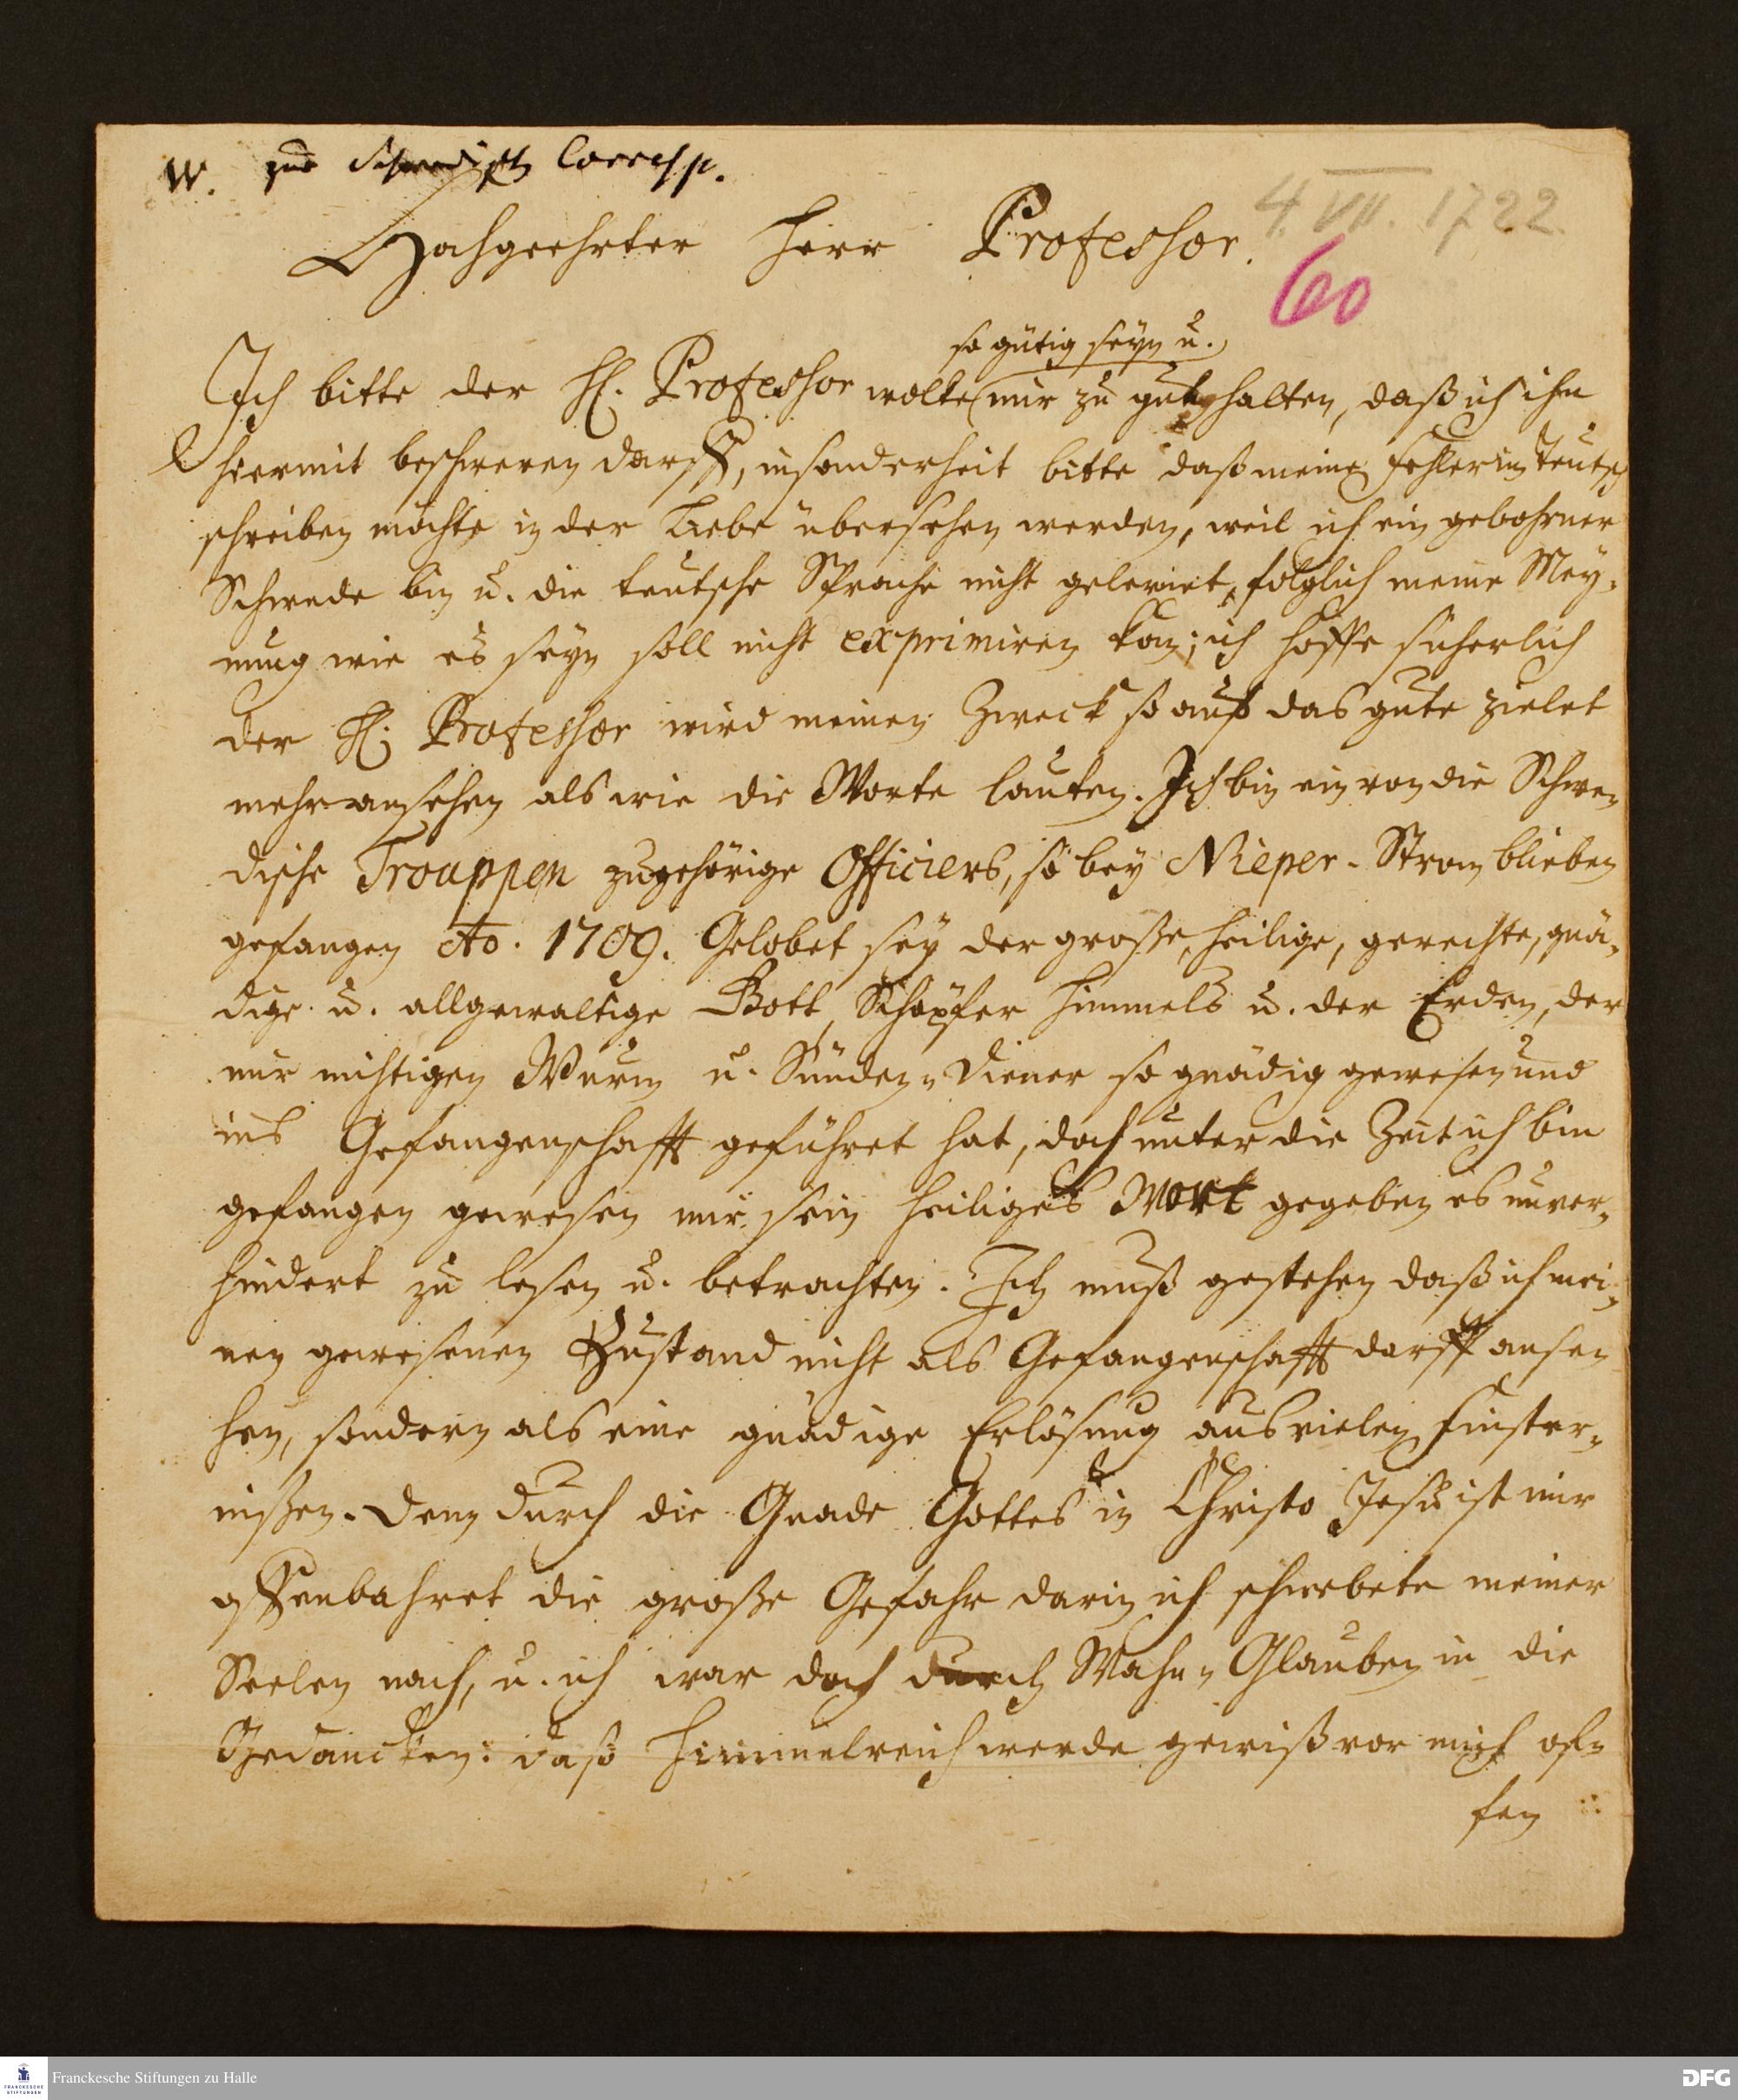 W. zur Schwedisch Corresp.
4. VII. 1722.
Hochgeehrter Herr Professor.
60
so gütig seyn u.
Ich bitte der H. Professor wolte mir zu gut halten, daß ich ihn
hiermit beschweren darff, insonderheit bitte daß meine Fehler im Teutsch
schreiben möchte in der Liebe übersehen werden, weil ich ein gebohrner
Schwede bin u. die teutsche Sprache nicht gelernet, folglich meine Mey-
nung wie es seyn soll nicht exprimiren kan; ich hoffe sicherlich
der H. Professor wird meinen Zweck so auf das gute zielet
mehr ansehen als wie die Worte lauten. Ich bin ein von die Schwe-
dische Trouppen zugehörige Officiers, so bey Nieper-Strom blieben
gefangen Ao. 1709. Gelobet sey der große, heilige, gerechte, gnä-
dige u. allgewaltige Gott, Schöpfer Himmels u. der Erden, der
mir nichtigen Wurm u. Sünden-Diener so gnädig gewesen und
ins Gefangenschafft geführet hat, doch unter die Zeit ich bin
gefangen gewesen mir sein heiliges Wort gegeben es unver-
hindert zu lesen u. betrachten. Ich muß gestehen daß ich mei-
nen gewesenen Zustand nicht als Gefangenschafft darff anse-
hen, sondern als eine gnädige Erlösung aus vielen Finster-
nißen. Denn durch die Gnade Gottes in Christo Jesu ist mir
offenbahret die große Gefahr darin ich schwebete meiner
Seelen nach, u. ich war doch durch Wahn-Glauben in die
Gedancken: daß Himmelreich werde gewiß vor mich of-
fen
Franckesche Stiftungen zu Halle
FRANCKESCHE
STIFTUNGEN
DFG